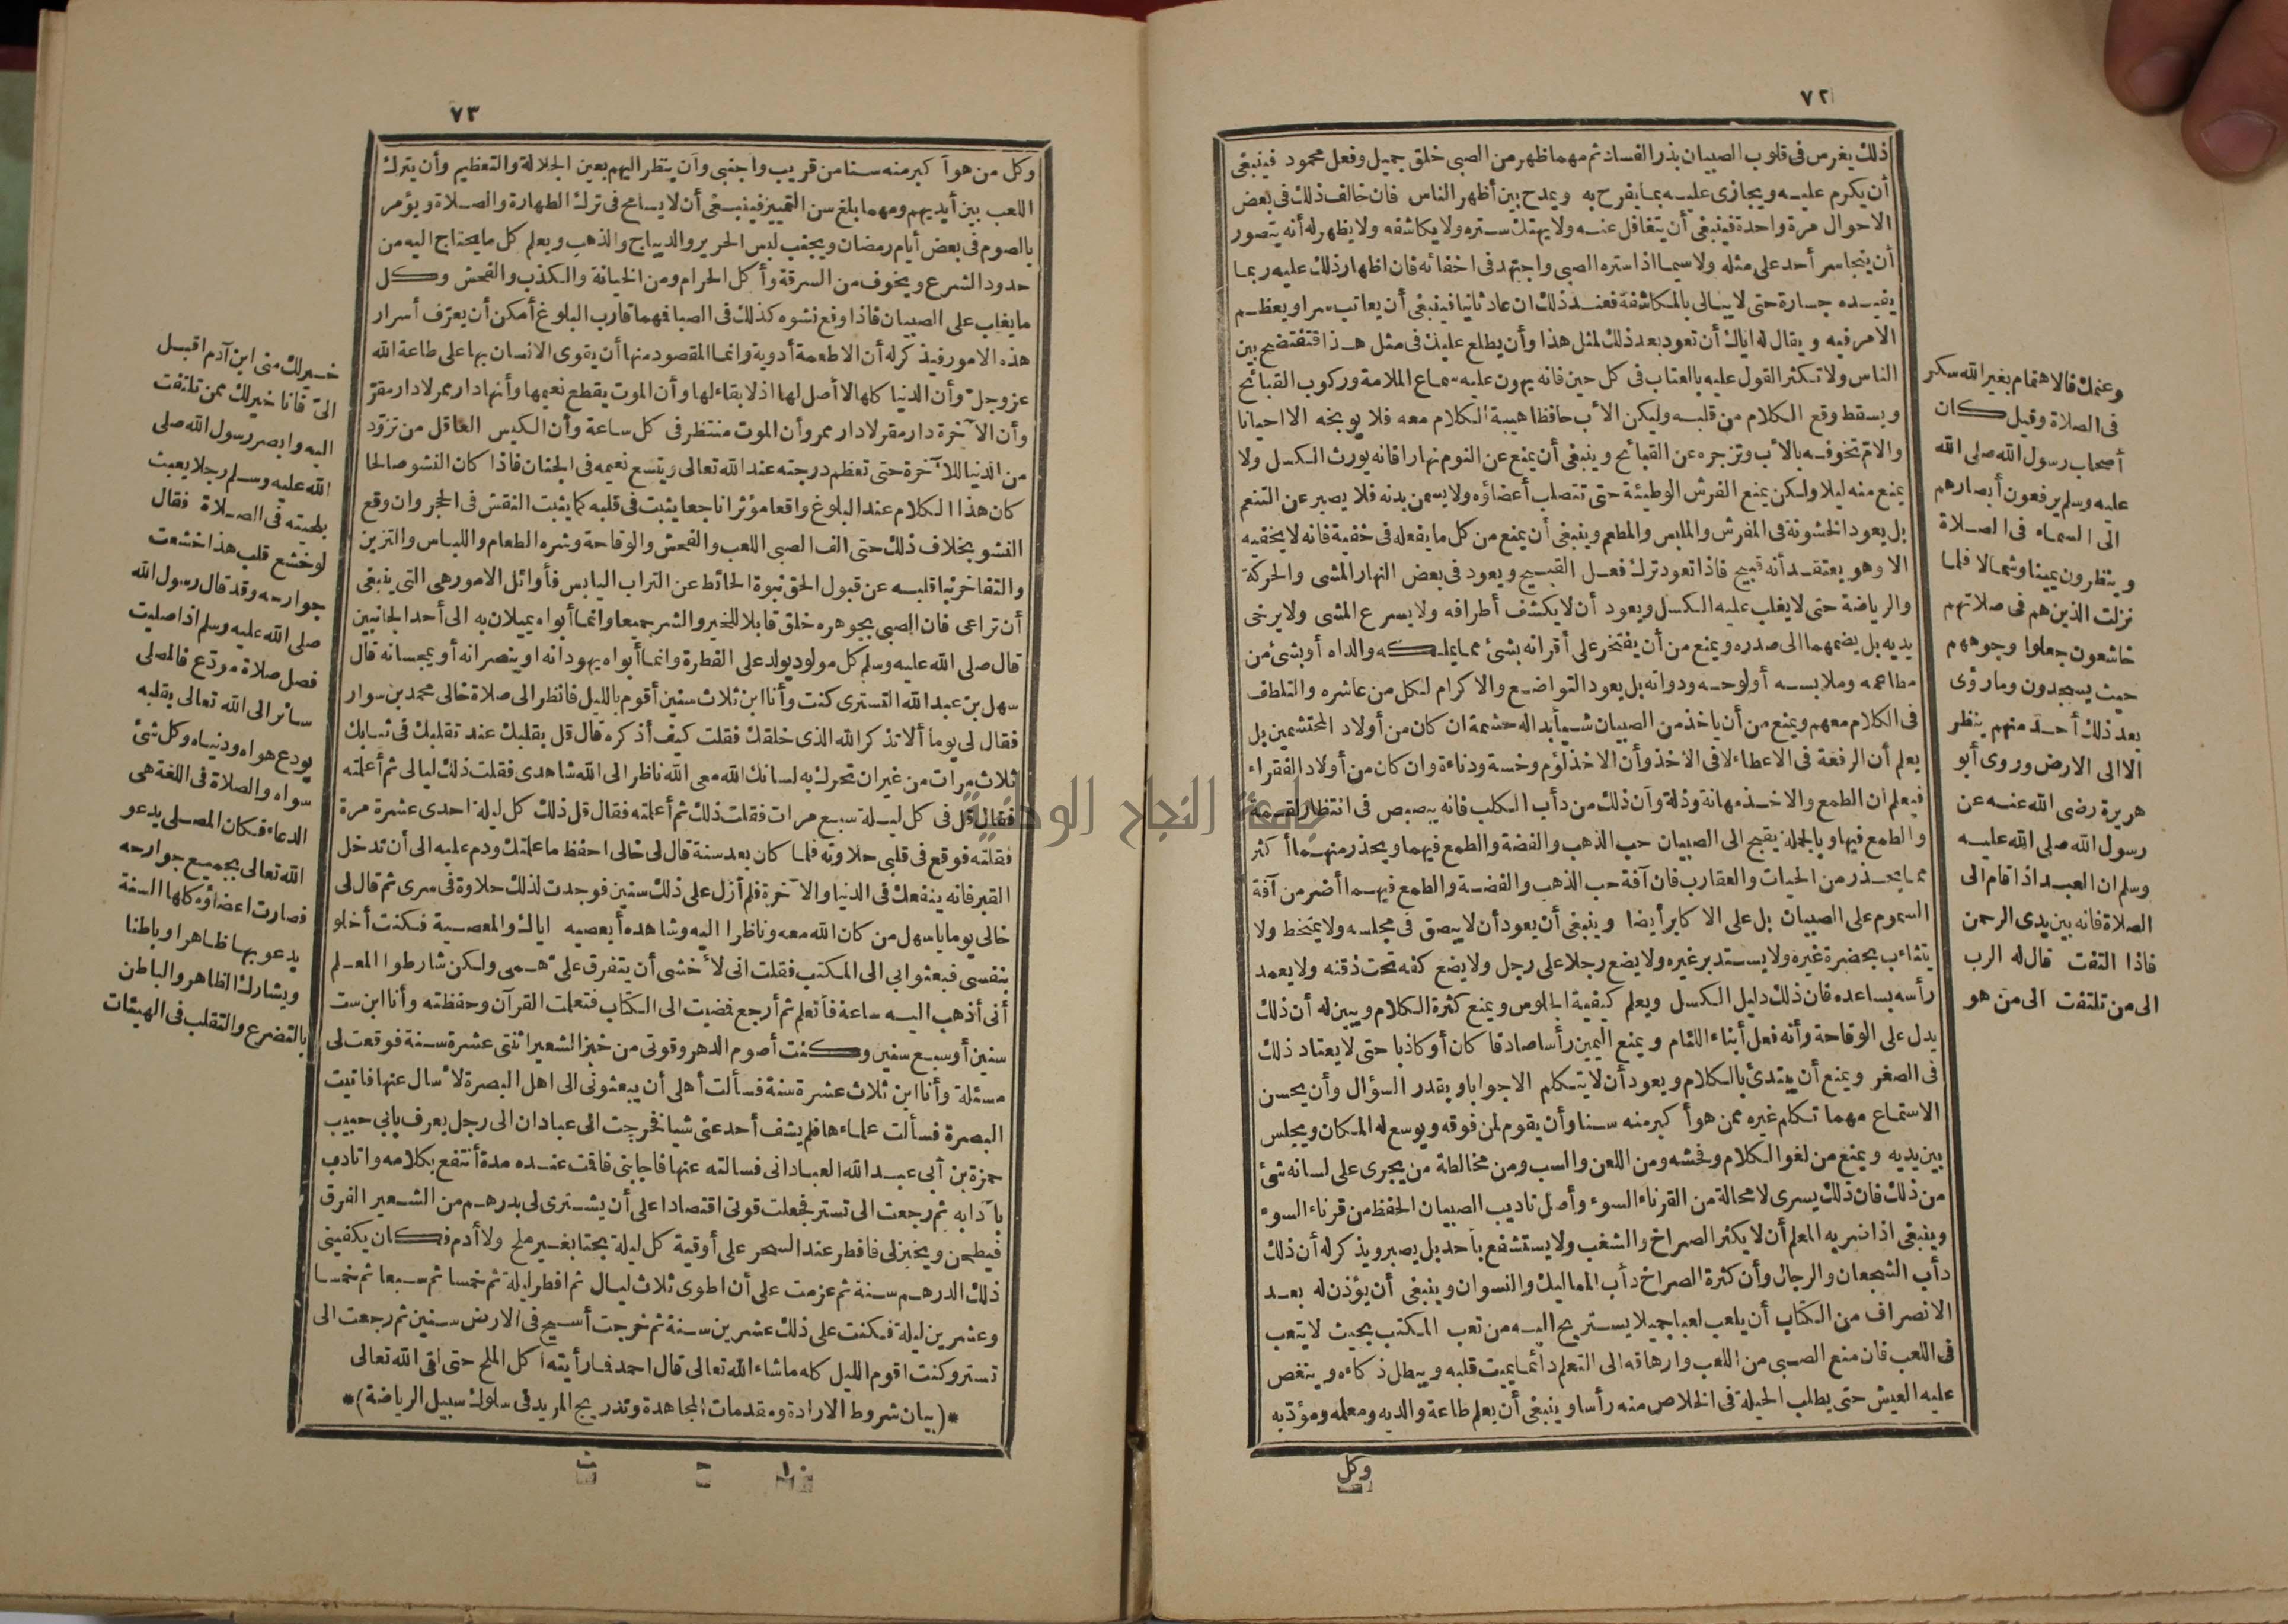 ٧٢
ذلك يغرس فى قلوب الصبيان بذر الفساد ثم مهما ظهر من الصبى خلق جميل وفعل محمود فينبغى
أن يكرم عليه ويجازى عليه بما يفرح به ويمدح بين أظهر الناس فان خالف ذلك فى بعض
الاحوال مرة واحدة فينبغى أن يتغافل عنه ولا يهتك ستره ولا يكاشفه ولا يظهر له أنه يتصور
أن يتجاسر أحد على مثله ولا سيما اذا ستره الصبى واجتهد فى اخفائه فان اظهار ذلك عليه ربما
يفيده جسارة حتى لا يبالى بالمكاشفة فعند ذلك ان عاد ثانيا فينبغى أن يعاتب سرا ويعظم
الامر فيه ويقال له اياك أن تعود بعد ذلك لمثل هذا وأن يطلع عليك فى مثل هذا فتفتضح بين
الناس ولا تكثر القول عليه بالعتاب فى كل حين فانه يهون عليه سماع الملامة وركوب القبائح
ويسقط وقع الكلام من قلبه وليكن الأب حافظا هيبة الكلام معه فلا يوبخه الا احيانا
والام تخوفه بالأب وتزجره عن القبائح وينبغى أن يمنع عن النوم نهارا فانه يورث الكسل ولا
يمنع منه ليلا ولكن يمنع الفرش الوطيئة حتى تتصلب أعضاؤه ولا يسمن بدنه فلا يصبر عن التنعم
بل يعود الخشونة فى المفرش والملبس والمطعم وينبغى أن يمنع من كل ما يفعله فى خفية فانه لا يخفيه
الا وهو يعتقد أنه قبيح فاذا تعود ترك فعل القبيح ويعود فى بعض النهار المشى والحركة
والرياضة حتى لا يغلب عليه الكسل ويعود أن لا يكشف أطرافه ولا يسرع المشى ولا يرخى
يديه بل يضمهما الى صدره ويمنع من أن يفتخر على أقرانه بشئ مما يملكه والداه أو بشئ من
مطاعمه وملابسه أو لوحه ودواته بل يعود التواضع والاكرام لكل من عاشره والتلطف
فى الكلام معهم ويمنع من أن ياخذ من الصبيان شيأ بدا له حشمة ان كان من أولاد المحتشمين بل
يعلم أن الرفعة فى الاعطاء لا فى الاخذ وأن الاخذ لؤم وخسة ودناءة وان كان من أولاد الفقراء
فيعلم أن الطمع والاخذ مهانة وذلة وأن ذلك من دأب الكلب فانه يبصبص فى انتظار لقمة
والطمع فيها وبالجملة يقبح الى الصبيان حب الذهب والفضة والطمع فيهما ويحذر منهما أكثر
مما يحذر من الحيات والعقارب فان آفة حب الذهب والفضة والطمع فيهما أضر من آفة
السموم على الصبيان بل على الاكابر أيضا وينبغى أن يعود أن لا يبصق فى مجلسه ولا يتمخط ولا
يتثاءب بحضرة غيره ولا يستدبر غيره ولا يضع رجلا على رجل ولا يضع كفه تحت ذقنه ولا يعمد
رأسه بساعده فان ذلك دليل الكسل ويعلم كيفية الجلوس ويمنع كثرة الكلام ويبين له أن ذلك
يدل على الوقاحة وأنه فعل أبناء اللئام ويمنع اليمين رأسا صادقا كان أو كاذبا حتى لا يعتاد ذلك
فى الصغر ويمنع أن يبتدئ بالكلام ويعود أن لا يتكلم الا جوابا وبقدر السؤال وأن يحسن
الاستماع مهما تكلم غيره ممن هو أكبر منه سنا وأن يقوم لمن فوقه ويوسع له المكان ويجلس
بين يديه ويمنع من لغو الكلام وفحشه ومن اللعن والسب ومن مخالطة من يجرى على لسانه شئ
من ذلك فان ذلك يسرى لا محالة من القرناء السوء وأصل تاديب الصبيان الحفظ من قرناء السوء
وينبغى اذا ضربه المعلم أن لا يكثر الصراخ والشغب ولا يستشفع بأحد بل يصبر ويذكر له أن ذلك
دأب الشجعان والرجال وأن كثرة الصراخ دأب المماليك والنسوان وينبغى أن يؤذن له بعد
الانصراف من الكتاب أن يلعب لعبا جميلا يستريح اليه من تعب المكتب بحيث لا يتعب
فى اللعب فان منع الصبى من اللعب وارهاقه الى التعلم دائما يميت قلبه ويبطل ذكاءه وينغص
عليه العيش حتى يطلب الحيلة فى الخلاص منه رأسا وينبغى أن يعلم طاعة والديه ومعلمه ومؤدّبه
وكل
وعنك فالاهتمام بغير الله سكر
فى الصلاة وقيل كان
أصحاب رسول الله صلى الله
عليه وسلم يرفعون أبصارهم
الى السماء فى الصلاة
وينظرون يمينا وشمالا فلما
نزلت الذين هم فى صلاتهم
خاشعون جعلوا وجوههم
حيث يسجدون وما رؤى
بعد ذلك أحد منهم ينظر
الا الى الارض وروى أبو
هريرة رضى الله عنه عن
رسول الله صلى الله عليه
وسلم ان العبد اذا قام الى
الصلاة فانه بين يدى الرحمن
فاذا التفت قال له الرب
الى من تلتفت الى من هو
٧٣
وكل من هو أكبر منه سنا من قريب وأجنبى وأن ينظر اليهم بعين الجلالة والتعظيم وأن يترك
اللعب بين أيديهم ومهما بلغ سن التمييز فينبغى أن لا يسامح فى ترك الطهارة والصلاة ويؤمر
بالصوم فى بعض أيام رمضان ويجنب لبس الحرير والديباج والذهب ويعلم كل ما يحتاج اليه من
حدود الشرع ويخوف من السرقة وأكل الحرام ومن الخيانة والكذب والفحش وكل
ما يغلب على الصبيان فاذا وقع نشوه كذلك فى الصبا فمهما قارب البلوغ أمكن أن يعرّف أسرار
هذه الامور فيذكر له أن الاطعمة أدوية وانما المقصود منها أن يقوى الانسان بها على طاعة الله
عز وجلّ وأن الدنيا كلها لا أصل لها اذ لا بقاء لها وأن الموت يقطع نعيمها وأنها دار ممر لا دار مقرّ
وأن الآخرة دار مقر لا دار ممر وأن الموت منتظر فى كل ساعة وأن الكيس العاقل من تزوّد
من الدنيا للآخرة حتى تعظم درجته عند الله تعالى ويتسع نعيمه فى الجنان فاذا كان النشو صالحا
كان هذا الكلام عند البلوغ واقعا مؤثرا ناجعا يثبت فى قلبه كما يثبت النقش فى الحجر وان وقع
النشو بخلاف ذلك حتى الف الصبى اللعب والفحش والوقاحة وشره الطعام واللباس والتزين
والتفاخر نبا قلبه عن قبول الحق نبوة الحائط عن التراب اليابس فأوائل الامور هى التى ينبغى
أن تراعى فان الصبى بجوهره خلق قابلا للخير والشر جميعا وانما أبواه يميلان به الى أحد الجانبين
قال صلى الله عليه وسلم كل مولود يولد على الفطرة وانما أبواه يهودانه او ينصرانه أو يمجسانه قال
سهل بن عبد الله التسترى كنت وأنا ابن ثلاث سنين أقوم بالليل فانظر الى صلاة خالى محمد بن سوار
فقال لى يوما ألا تذكر الله الذى خلقك فقلت كيف أذكره قال قل بقلبك عند تقلبك فى ثيابك
ثلاث مرات من غير ان تحرك به لسانك الله معى الله ناظر الى الله شاهدى فقلت ذلك ليالى ثم أعلمته
فقال قل فى كل ليلة سبع مرات فقلت ذلك ثم أعلمته فقال قل ذلك كل ليلة احدى عشرة مرة
فقلته فوقع فى قلبى حلاوته فلما كان بعد سنة قال لى خالى احفظ ما علمتك ودم عليه الى أن تدخل
القبر فانه ينفعك فى الدنيا والآخرة فلم أزل على ذلك سنين فوجدت لذلك حلاوة فى سرى ثم قال لى
خالى يوما ياسهل من كان الله معه وناظرا اليه وشاهده أيعصيه اياك والمعصية فكنت أخلو
بنفسى فبعثوا بى الى المكتب فقلت انى لأخشى أن يتفرق علىّ همى ولكن شارطوا المعلم
أنى أذهب اليه ساعة فأتعلم ثم أرجع فمضيت الى الكتاب فتعلمت القرآن وحفظته وأنا ابن ست
سنين أو سبع سنين وكنت أصوم الدهر وقوتى من خبز الشعير اثنتى عشرة سنة فوقعت لى
مسئلة وأنا ابن ثلاث عشرة سنة فسألت أهلى أن يبعثونى الى اهل البصرة لأسال عنها فاتيت
البصرة فسألت علماءها فلم يشف أحد عنى شيا فخرجت الى عبادان الى رجل يعرف بابى حبيب
حمزة بن أبى عبد الله العبادانى فسالته عنها فاجابنى فاقمت عنده مدة أنتفع بكلامه واتادب
بآدابه ثم رجعت الى تستر فجعلت قوتى اقتصادا على أن يشترى لى بدرهم من الشعير الفرق
فيطحن ويخبز لى فافطر عند السحر على أوقية كل ليلة بحتا بغير ملح ولا أدم فكان يكفينى
ذلك الدرهم سنة ثم عزمت على أن اطوى ثلاث ليال ثم افطر ليلة ثم خمسا ثم سبعا ثم خمسا
وعشرين ليلة فكنت على ذلك عشرين سنة ثم خرجت أسيح فى الارض سنين ثم رجعت الى
تستر وكنت اقوم الليل كله ماشاء الله تعالى قال احمد فما رأيته أكل الملح حتى لقى الله تعالى
*(بيان شروط الارادة ومقدمات المجاهدة وتدريج المريد فى سلوك سبيل الرياضة)*
خير لك منى ابن آدم اقبل
الىّ فانا خير لك ممن تلتفت
اليه وابصر رسول الله صلى
الله عليه وسلم رجلا يعبث
بلحيته فى الصلاة فقال
لو خشع قلب هذا خشعت
جوارحه وقد قال رسول الله
صلى الله عليه وسلم اذا صليت
فصل صلاة مودّع فالمصلى
سائر الى الله تعالى بقلبه
يودع هواه ودنياه وكل شئ
سواه والصلاة فى اللغة هى
الدعاء فكان المصلى يدعو
الله تعالى بجميع جوارحه
فصارت اعضاؤه كلها السنة
يدعو بها ظاهرا وباطنا
ويشارك الظاهر والباطن
بالتضرع والتقلب فى الهيئات
جامعة النجاح الوطنية